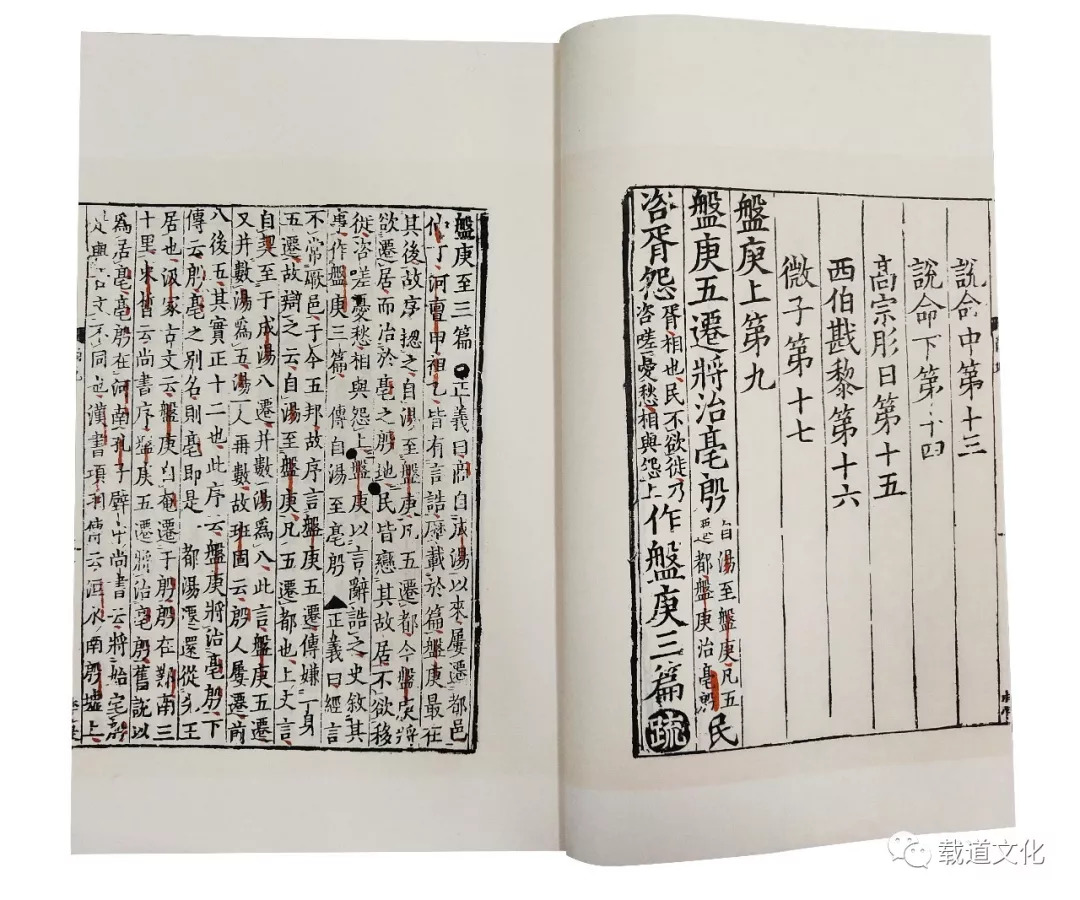 說命中第十三
說命下第十四
高宗肜日第十五
西伯戡黎第十六
微子第十七
盤庚上第九
盤庚五遷將治亳殷自湯至盤庚凡五遷都盤庚治亳殷民
咨胥怨胥相也民不欲徙乃咨嗟憂愁相與怨上作盤庚三篇疏
盤庚至三篇正義曰商自成湯以來屢遷都邑
仲丁河亶甲祖乙皆有言誥歷載於篇盤庚最在
其後故序揔之自湯至盤庚凡五遷都今盤庚將
欲遷居而治於亳之殷地民皆戀其故居不欲移
徙咨嗟憂愁相與怨上盤庚以言辭誥之史敘其
事作盤庚三篇傳自湯至亳殷正義曰經言
不常厥邑于今五邦故序言盤庚五遷傳嫌一身
五遷故辯之云自湯至盤庚凡五遷都也上文言
自契至于成湯八遷并數湯爲八此言盤庚五遷
又并數湯爲五湯一人再數故班固云殷人屢遷前
八後五其實正十二也此序云盤庚將治亳殷下
傳云殷亳之別名則亳即是一都湯遷還從先王
居也汲冢古文云盤庚自奄遷于殷殷在鄴南三
十里束皙云尚書序盤庚五遷將治亳殷舊說以
爲居亳亳殷在河南孔子壁中尚書云將始宅殷
是與古文不同也漢書項羽傳云洹水南殷墟上
载道文化